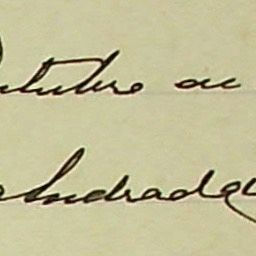 Outubro de
Andrade